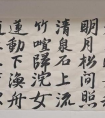 明月松間照
清泉石上流
竹喧歸浣女
蓮動下漁舟